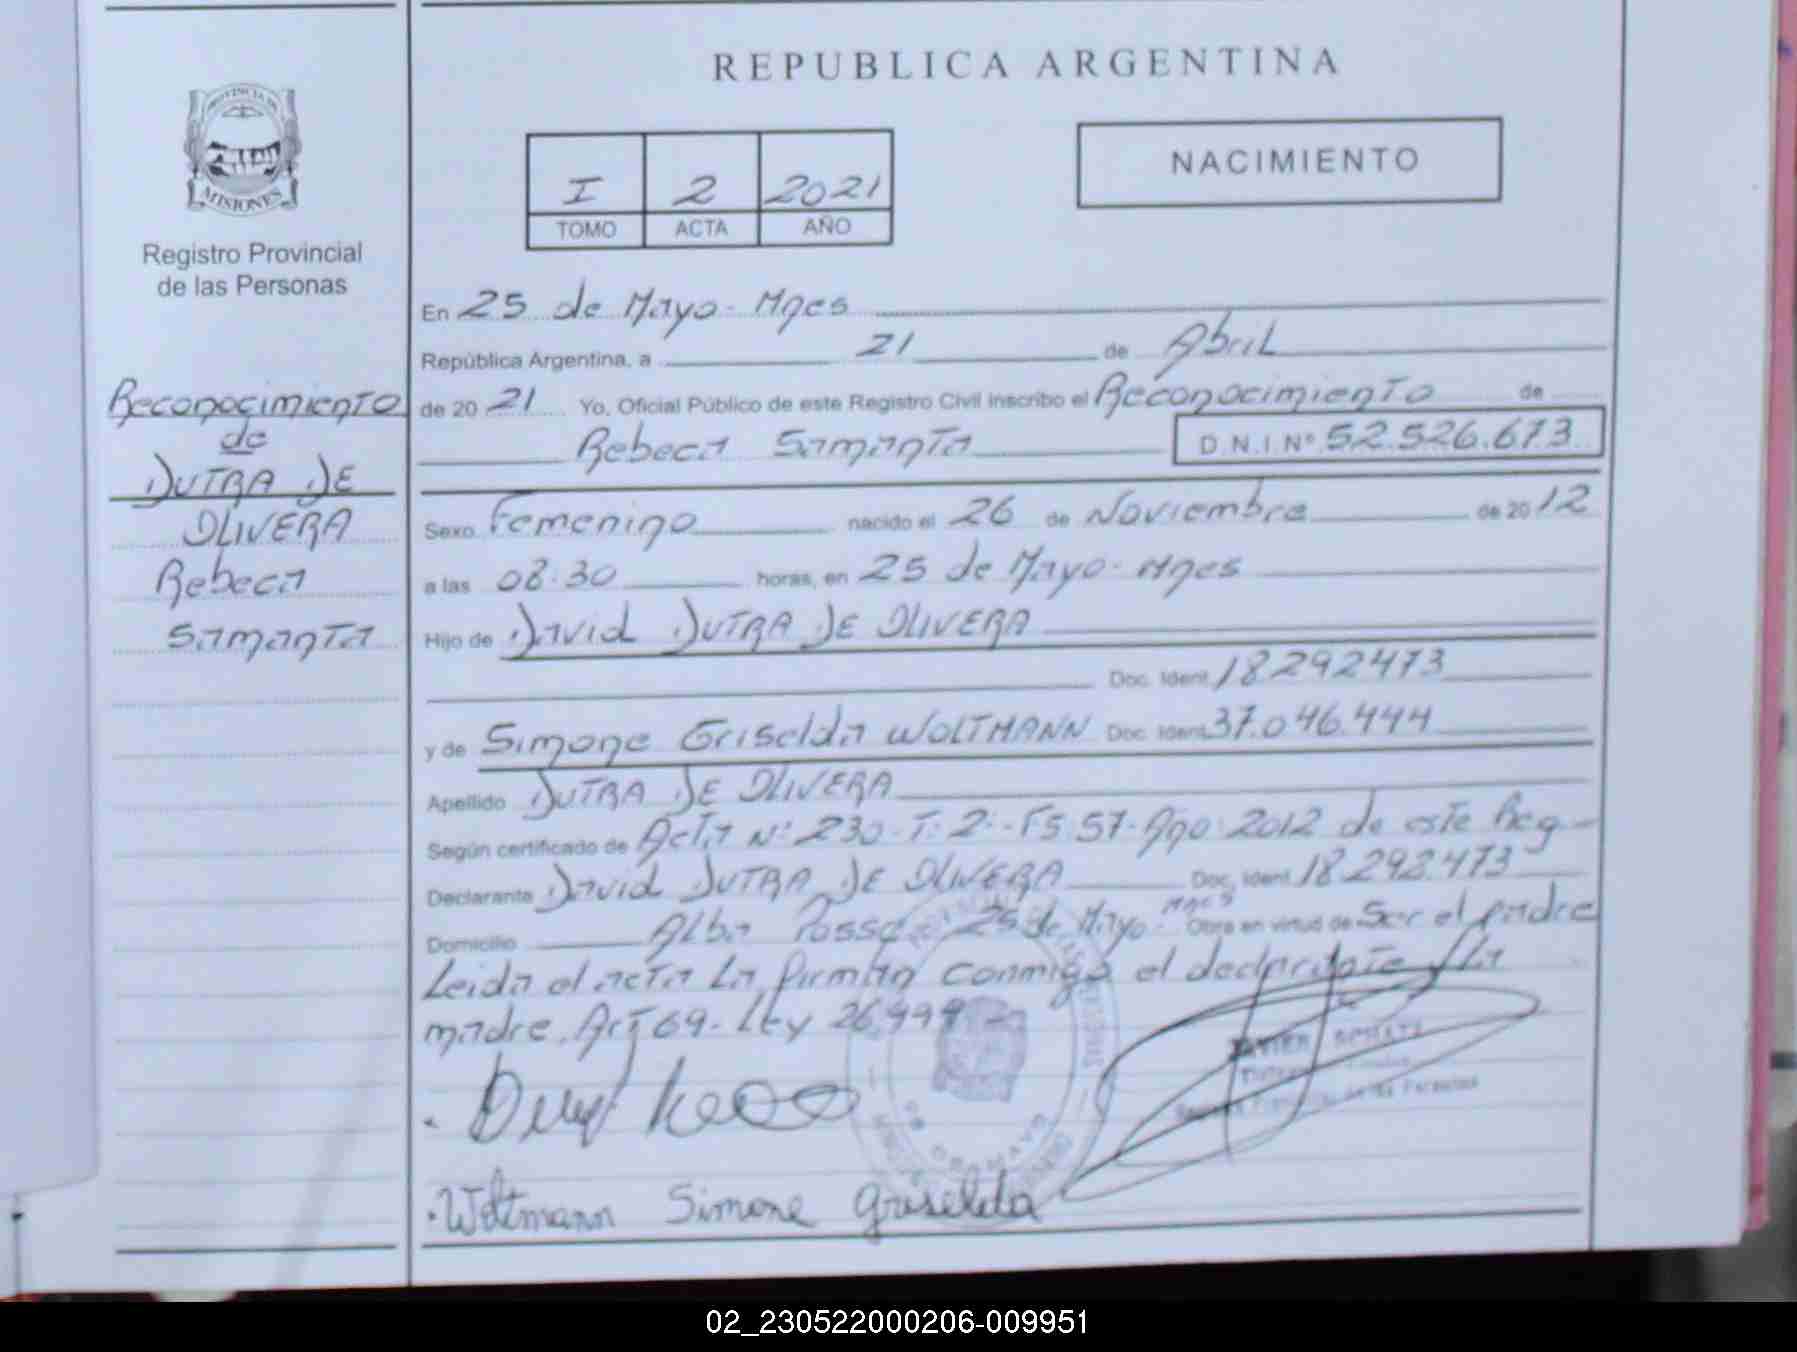 REPUBLICA ARGENTINA
PROVINCIA DE
MISIONES
Registro Provincial
de las Personas
I 2 2021
TOMO ACTA AÑO
NACIMIENTO
Reconocimiento
de
DUTRA DE
OLIVERA
Rebeca
Samanta
En 25 de Mayo - Mnes
República Argentina, a 21 de Abril
de 20 21 Yo, Oficial Público de este Registro Civil inscribo el Reconocimiento de
Rebeca Samanta D.N.I. Nº 52.526.673
Sexo Femenino nacido el 26 de Noviembre de 20 12
a las 08:30 horas, en 25 de Mayo - Mnes
Hijo de David DUTRA DE OLIVERA
Doc. Ident. 18.292.473
y de Simone Griselda WOLTMANN Doc. Ident. 37.046.444
Apellido DUTRA DE OLIVERA
Según certificado de Acta Nº 230- T: 2- Fs 57- Año: 2012 de este Reg-
Declarante David DUTRA DE OLIVERA Doc. Ident. 18.292.473
Domicilio Alba Posse 25 de Mayo - Mnes Obra en virtud de Ser el padre
Leida el acta la firman conmigo el declarante y la
madre. Art 69- Ley 26.994-
Woltmann Simone Griselda
02_230522000206-009951